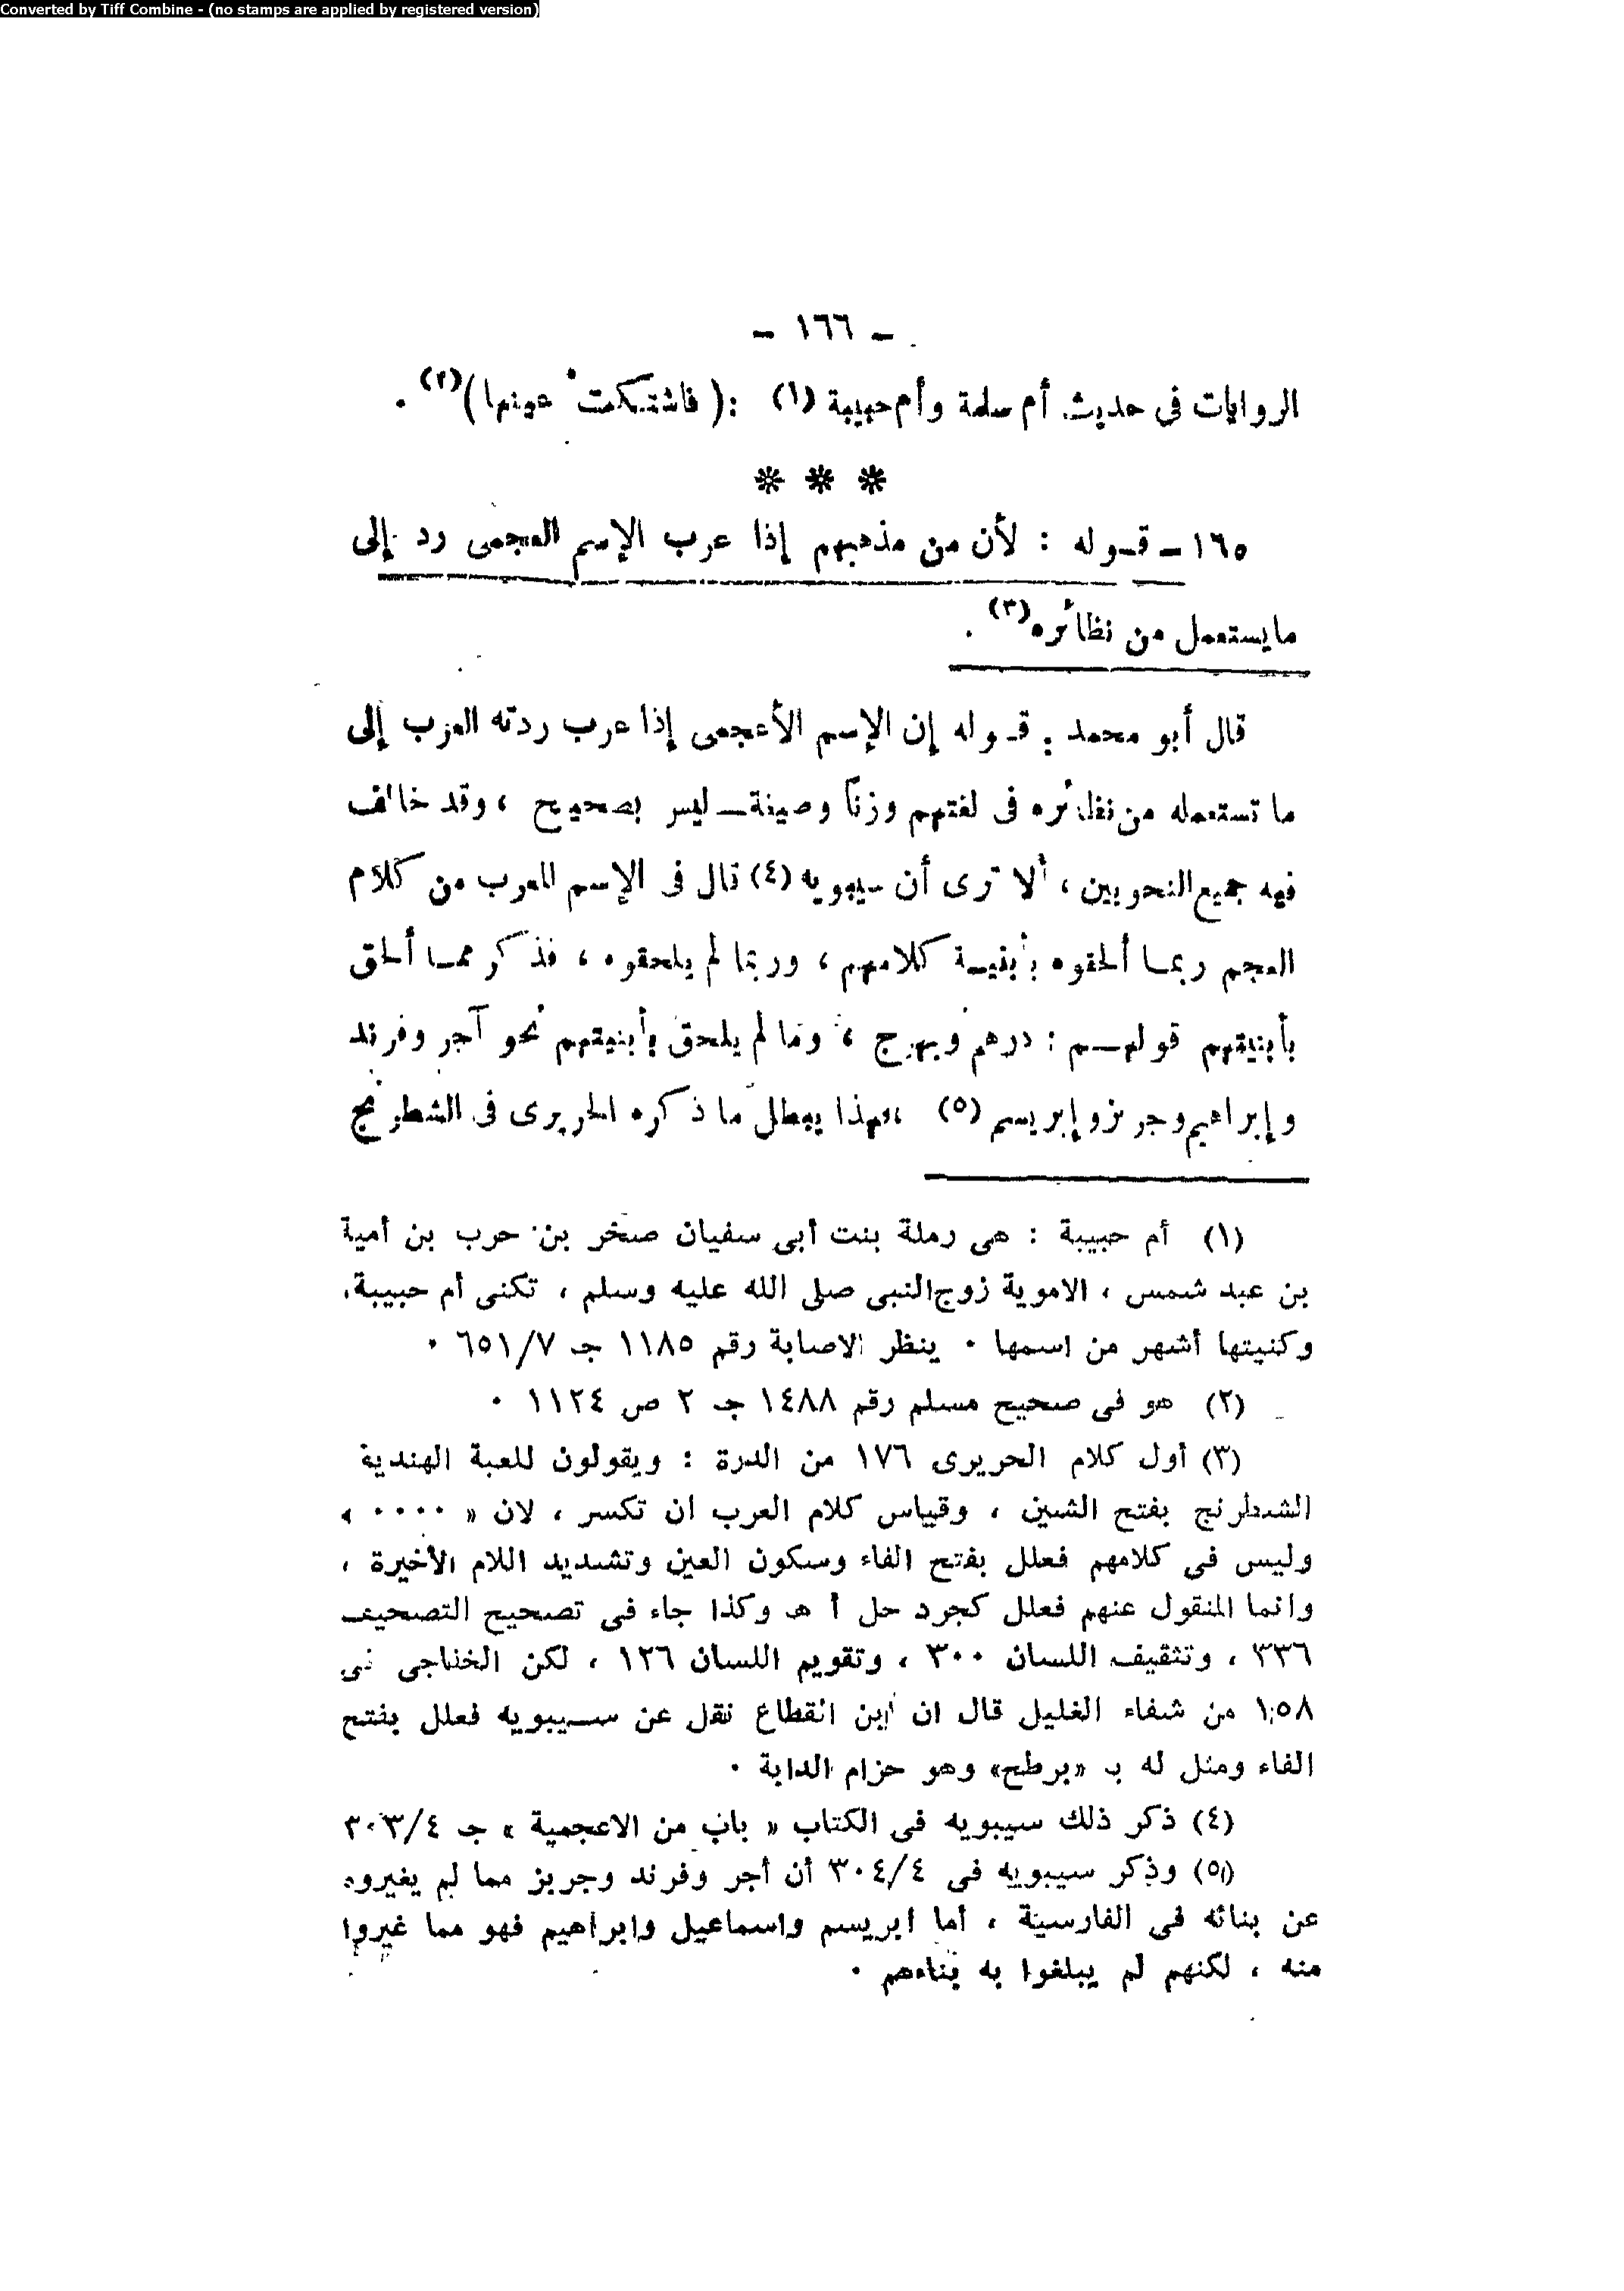 Converted by Tiff Combine - (no stamps are applied by registered version)
ـ ١٦٦ ـ
الروايات فى حديث أم سلمة وأم حبيبة (١) : ( فاشتـكت عينها )(٢) .
* * *
١٦٥ ـ قـوله : لأن من مذهبهم إذا عرب الإسم العجمى رد إلى
ما يستعمل من نظائره(٣) .
قال أبو محمد : قـوله إن الإسم الأعجمى إذا عرب ردته العرب إلى
ما تستعمله من نظائره فى لغتهم وزنًا وصيغة ـ ليس بصحيح ، وقد خالف
فيه جميع النحويين ، ألا ترى أن سيبويه (٤) قال فى الإسم المعرب من كلام
العجم ربمـا ألحقوه بأبنيـة كلامهم ، وربما لم يلحقوه ، فذكر ممـا ألحق
بأبنيتهم قولهــم : درهم وبهرج ، وما لم يلحق بأبنيتهم نحو آجر وفرند
وإبراهيم وجربز وإبريسم (٥) ، وبهذا يبطل ما ذكره الحريرى فى الشطرنج
(١) أم حبيبة : هى رملة بنت أبى سفيان صخر بن حرب بن أمية
بن عبد شمس ، الاموية زوج النبى صلى الله عليه وسلم ، تكنى أم حبيبة،
وكنيتها أشهر من اسمها ٠ ينظر الاصابة رقم ١١٨٥ جـ ٦٥١/٧ ٠
(٢) هو فى صحيح مسلم رقم ١٤٨٨ جـ ٢ ص ١١٢٤ ٠
(٣) أول كلام الحريرى ١٧٦ من الدرة : ويقولون للعبة الهندية
الشطرنج بفتح الشين ، وقياس كلام العرب ان تكسر ، لان « ٠٠٠٠ »
وليس فى كلامهم فعلل بفتح الفاء وسكون العين وتشديد اللام الأخيرة ،
وانما المنقول عنهم فعلل كجرد حل أ هـ وكذا جاء فى تصحيح التصحيف
٣٣٦ ، وتثقيف اللسان ٣٠٠ ، وتقويم اللسان ١٢٦ ، لكن الخفاجى فى
١٥٨ من شفاء الغليل قال ان ابن القطاع نقل عن ســيبويه فعلل بفتح
الفاء ومثل له بـ «برطح» وهو حزام الدابة ٠
(٤) ذكر ذلك سيبويه فى الكتاب « باب من الاعجمية » جـ ٣٠٣/٤
(٥) وذكر سيبويه فى ٣٠٤/٤ أن أجر وفرند وجربز مما لم يغيروه
عن بنائه فى الفارسية ، أما ابريسم واسماعيل وابراهيم فهو مما غيروا
منه ، لكنهم لم يبلغوا به بناءهم ٠